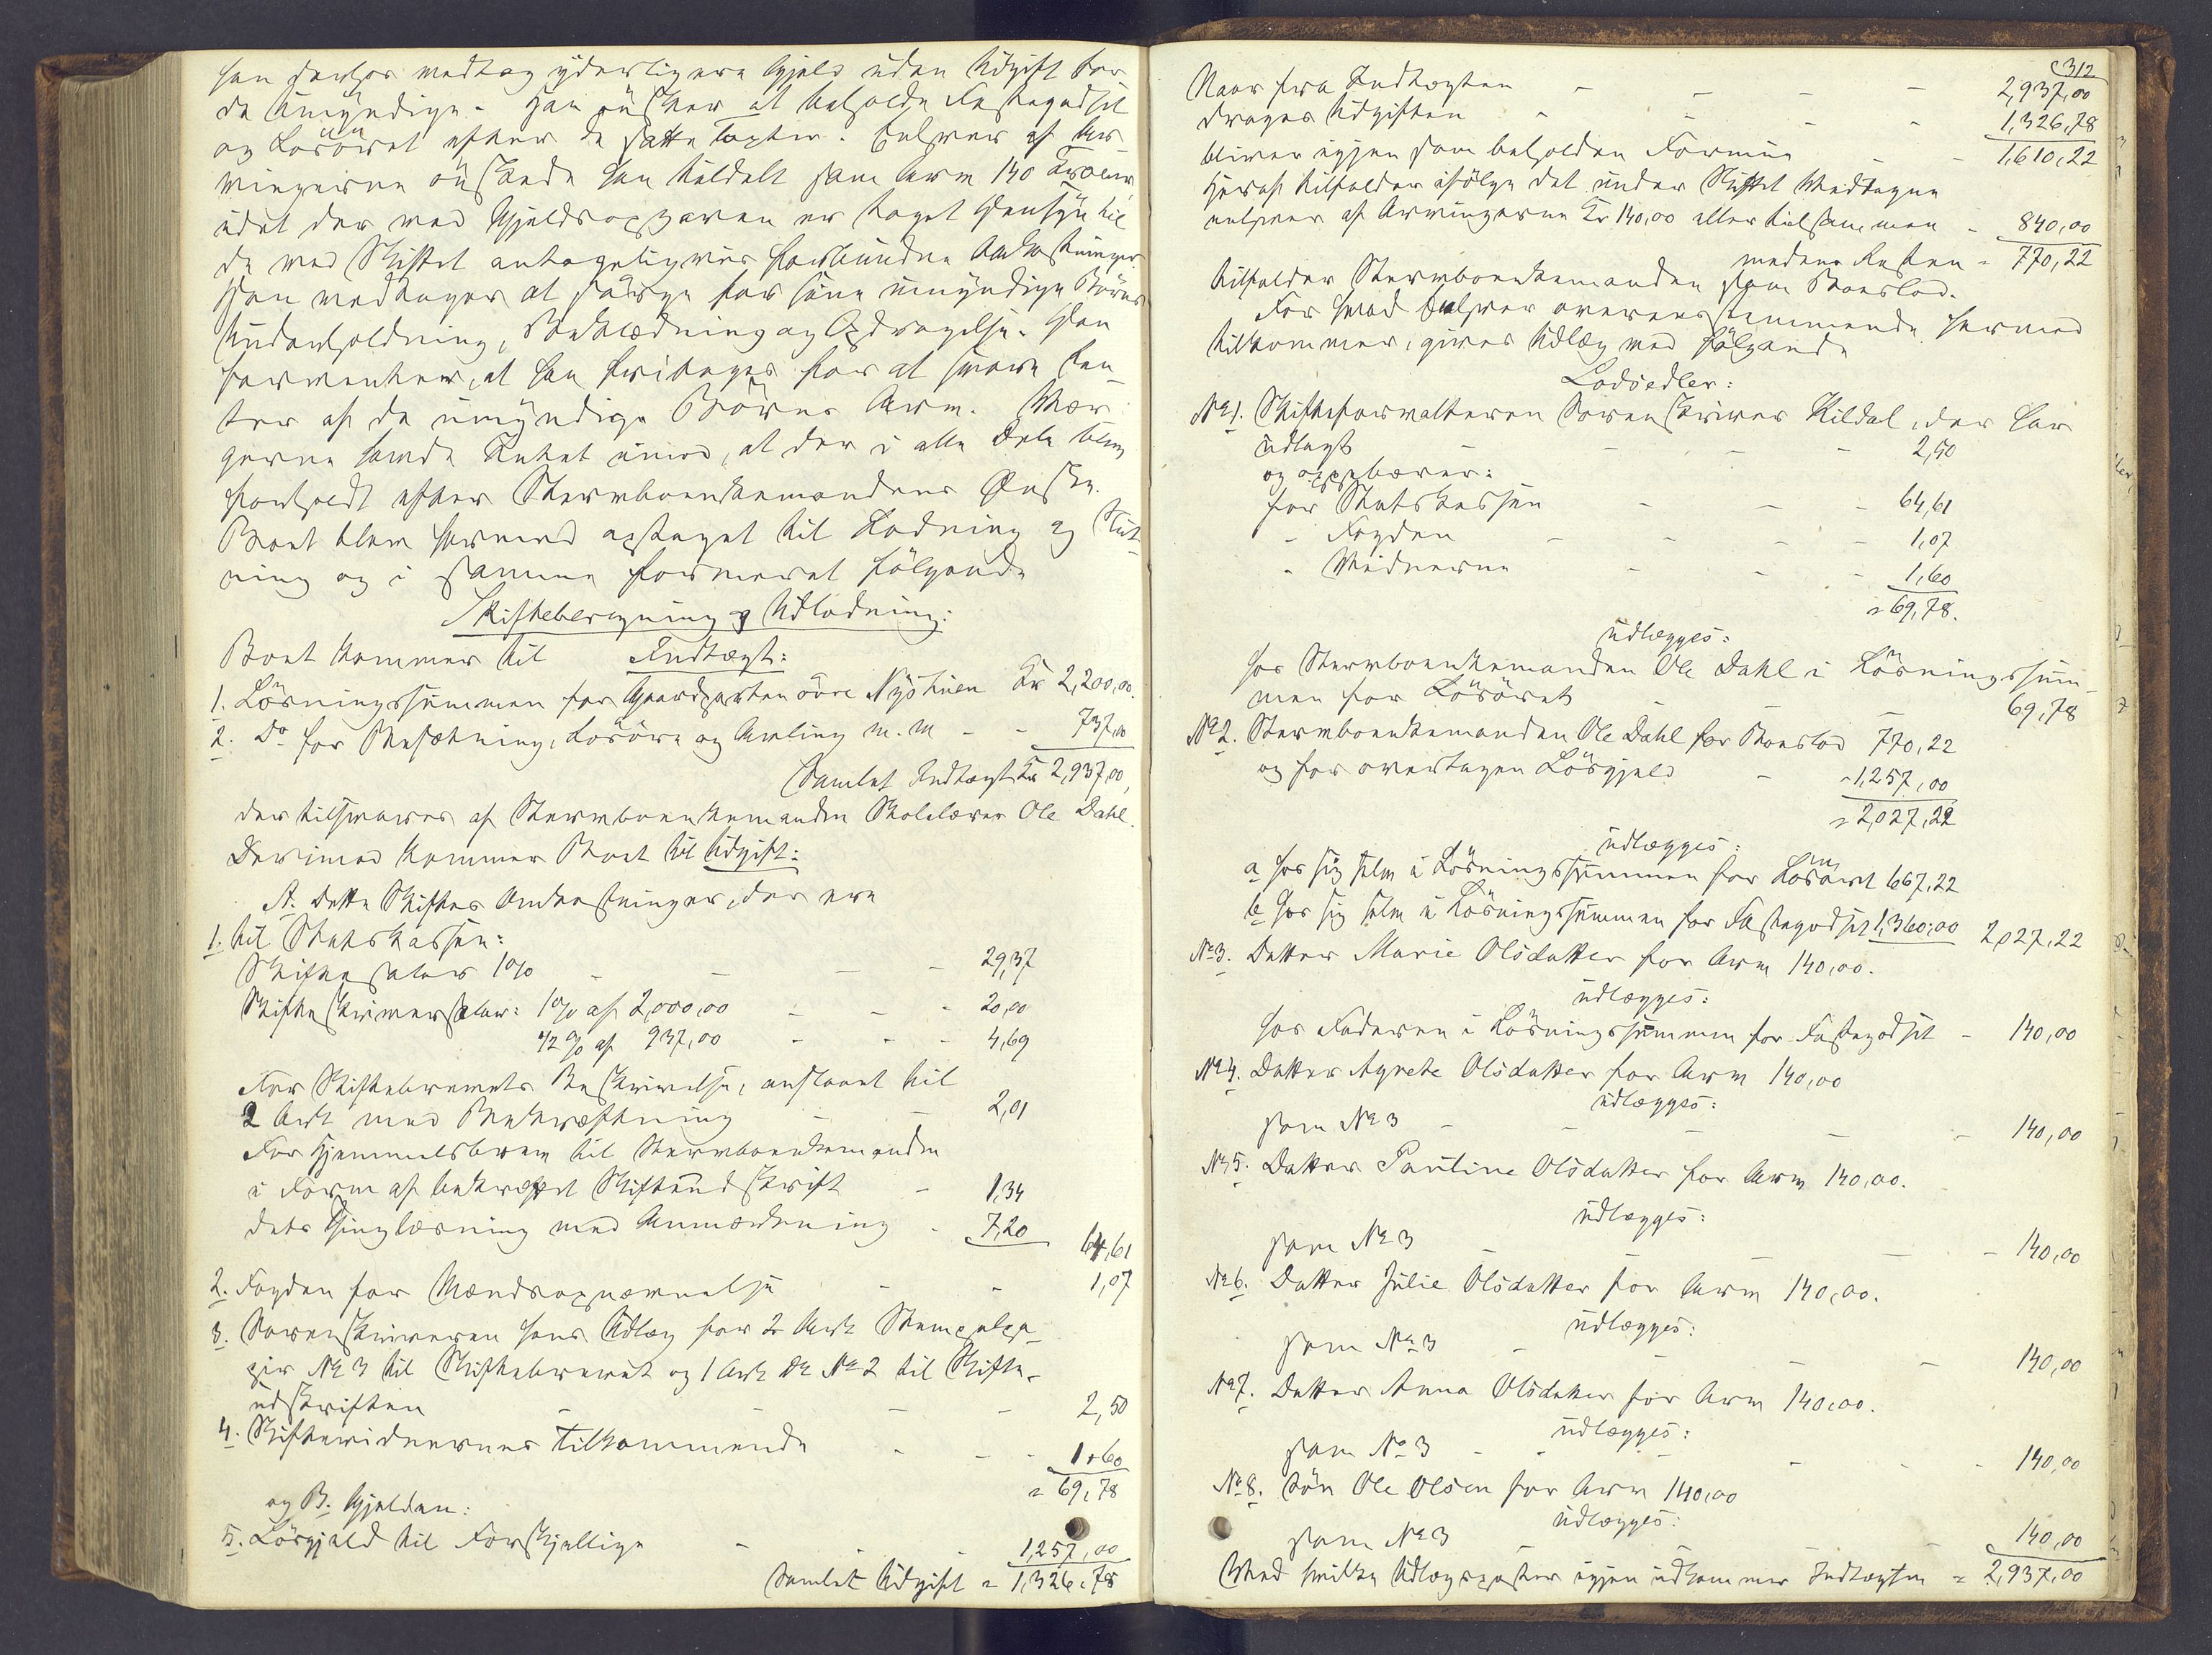 han derhos vedtog yderligere Gjeld uden Udgift for
de Umyndige. Han ønsker at beholde Fastegodset
og Løsøret efter de satte Taxter. Enhver af Ar-
vingerne ønskede han tildelt som Arv 140 Kroner
idet der ved Gjeldsopgaven er taget Hensyn til
de med Skiftet antageligviis forbundne Omkostninger.
Han vedtager at sørge for sine umyndige Børns
Underholdning, Beklædning og Opdragelse. Han
forventer, at han fritages for at svare Ren-
ter af de umyndige Børns Arv. Vær-
gerne havde Intet imod, at der i alle Dele blev
forholdt efter Stervboenkemandens Ønske.
Boet blev hermed optaget til Lodning og Slut-
ning og i samme formeret følgende
Skifteberegning og Udlodning:
Boet kommer til Indtægt:
1. Løsningssummen for Gaardparten øvre Nystuen Kr 2,200,00.
2. Do for Besætning, Løsøre og Avling m. m - - 737,00
Samlet Indtægt Kr 2,937,00,
der tilsvares af Stervboenkemanden Skolelærer Ole Dahl.
Derimod kommer Boet til Udgift:
A. dette Skiftes Omkostninger, der ere
1. til Statskassen:
Skiftesalær 1% - - - - 29,37
Skifteskriversalær: 1% af 2,000,00 - - - 20,00
1/2 % af 937,00 - - - 4,69
For Skiftebrevets Beskrivelse, anslaaet til
2 Ark med Bekræftning - - 2,01
For Hjemmelsbrev til Stervboenkemanden
i Form af bekræftet Skifteudskrift - 1,34
dets Thinglæsning med Anmærkning - 7,20 64,61
2. Fogden for Mændsopnævnelse - - 1,07
3. Sorenskriveren hans Udlæg for 2 Ark Stempelpa-
pir No 3 til Skiftebrevet og 1 Ark do No 2 til Skifte-
udskriften - - - - 2,50
4. Skiftevidnernes Tilkommende - - - 1,60
= 69,78
og B. Gjelden:
5. Løsgjeld til Forskjellige - - 1,257,00
Samlet Udgift = 1,326,78
312
Naar fra Indtægten - - - - 2,937,00
drages Udgiften - - - - 1,326,78
bliver igjen som beholden Formue - - 1,610,22
Heraf tilfalder ifølge det under Skiftet Vedtagne
enhver af Arvingerne Kr 140,00 eller tilsammen - 840,00
medens Resten = 770,22
tilfalder Stervboenkemanden som Boeslod.
For hvad Enhver overensstemmende hermed
tilkommer, gives Udlæg med følgende
Lodsedler:
No 1. Skifteforvalteren Sorenskriver Kildal, der har
udlagt - - - 2,50
og oppebærer:
for Statskassen - - - 64,61
- Fogden - - - - - 1,07
- Vidnerne - - - 1,60
= 69,78.
udlægges:
hos Stervboenkemanden Ole Dahl i Løsningssum-
men for Løsøret - - - 69,78
No 2. Stervboenkemanden Ole Dahl for Boeslod 770,22
og for overtagen Løsgjeld - - 1,257,00
= 2,027,22
udlægges:
a hos sig selv i Løsningssummen for Løsøret 667,22
b hos sig selv i Løsningssummen for Fastegodset 1,360,00 2,027,22
No 3. Datter Marie Olsdatter for Arv 140,00.
udlægges:
hos Faderen i Løsningssummen for Fastegodset - 140,00
No 4. Datter Agnete Olsdatter for Arv 140,00
udlægges:
som No 3 - - - - - 140,00
No 5. Datter Pauline Olsdatter for Arv 140,00.
udlægges:
som No 3 - - - - - 140,00
No 6. Datter Julie Olsdatter for Arv 140,00.
udlægges:
som No 3 - - - - 140,00
No 7. Datter Anna Olsdatter for Arv 140,00.
udlægges:
som No 3 - - - - - 140,00
No 8. Søn Ole Olsen for Arv 140,00
udlægges:
som No 3 - - 140,00
Ved hvilke Udlægsposter igjen udkommer Indtægten = 2,937,00